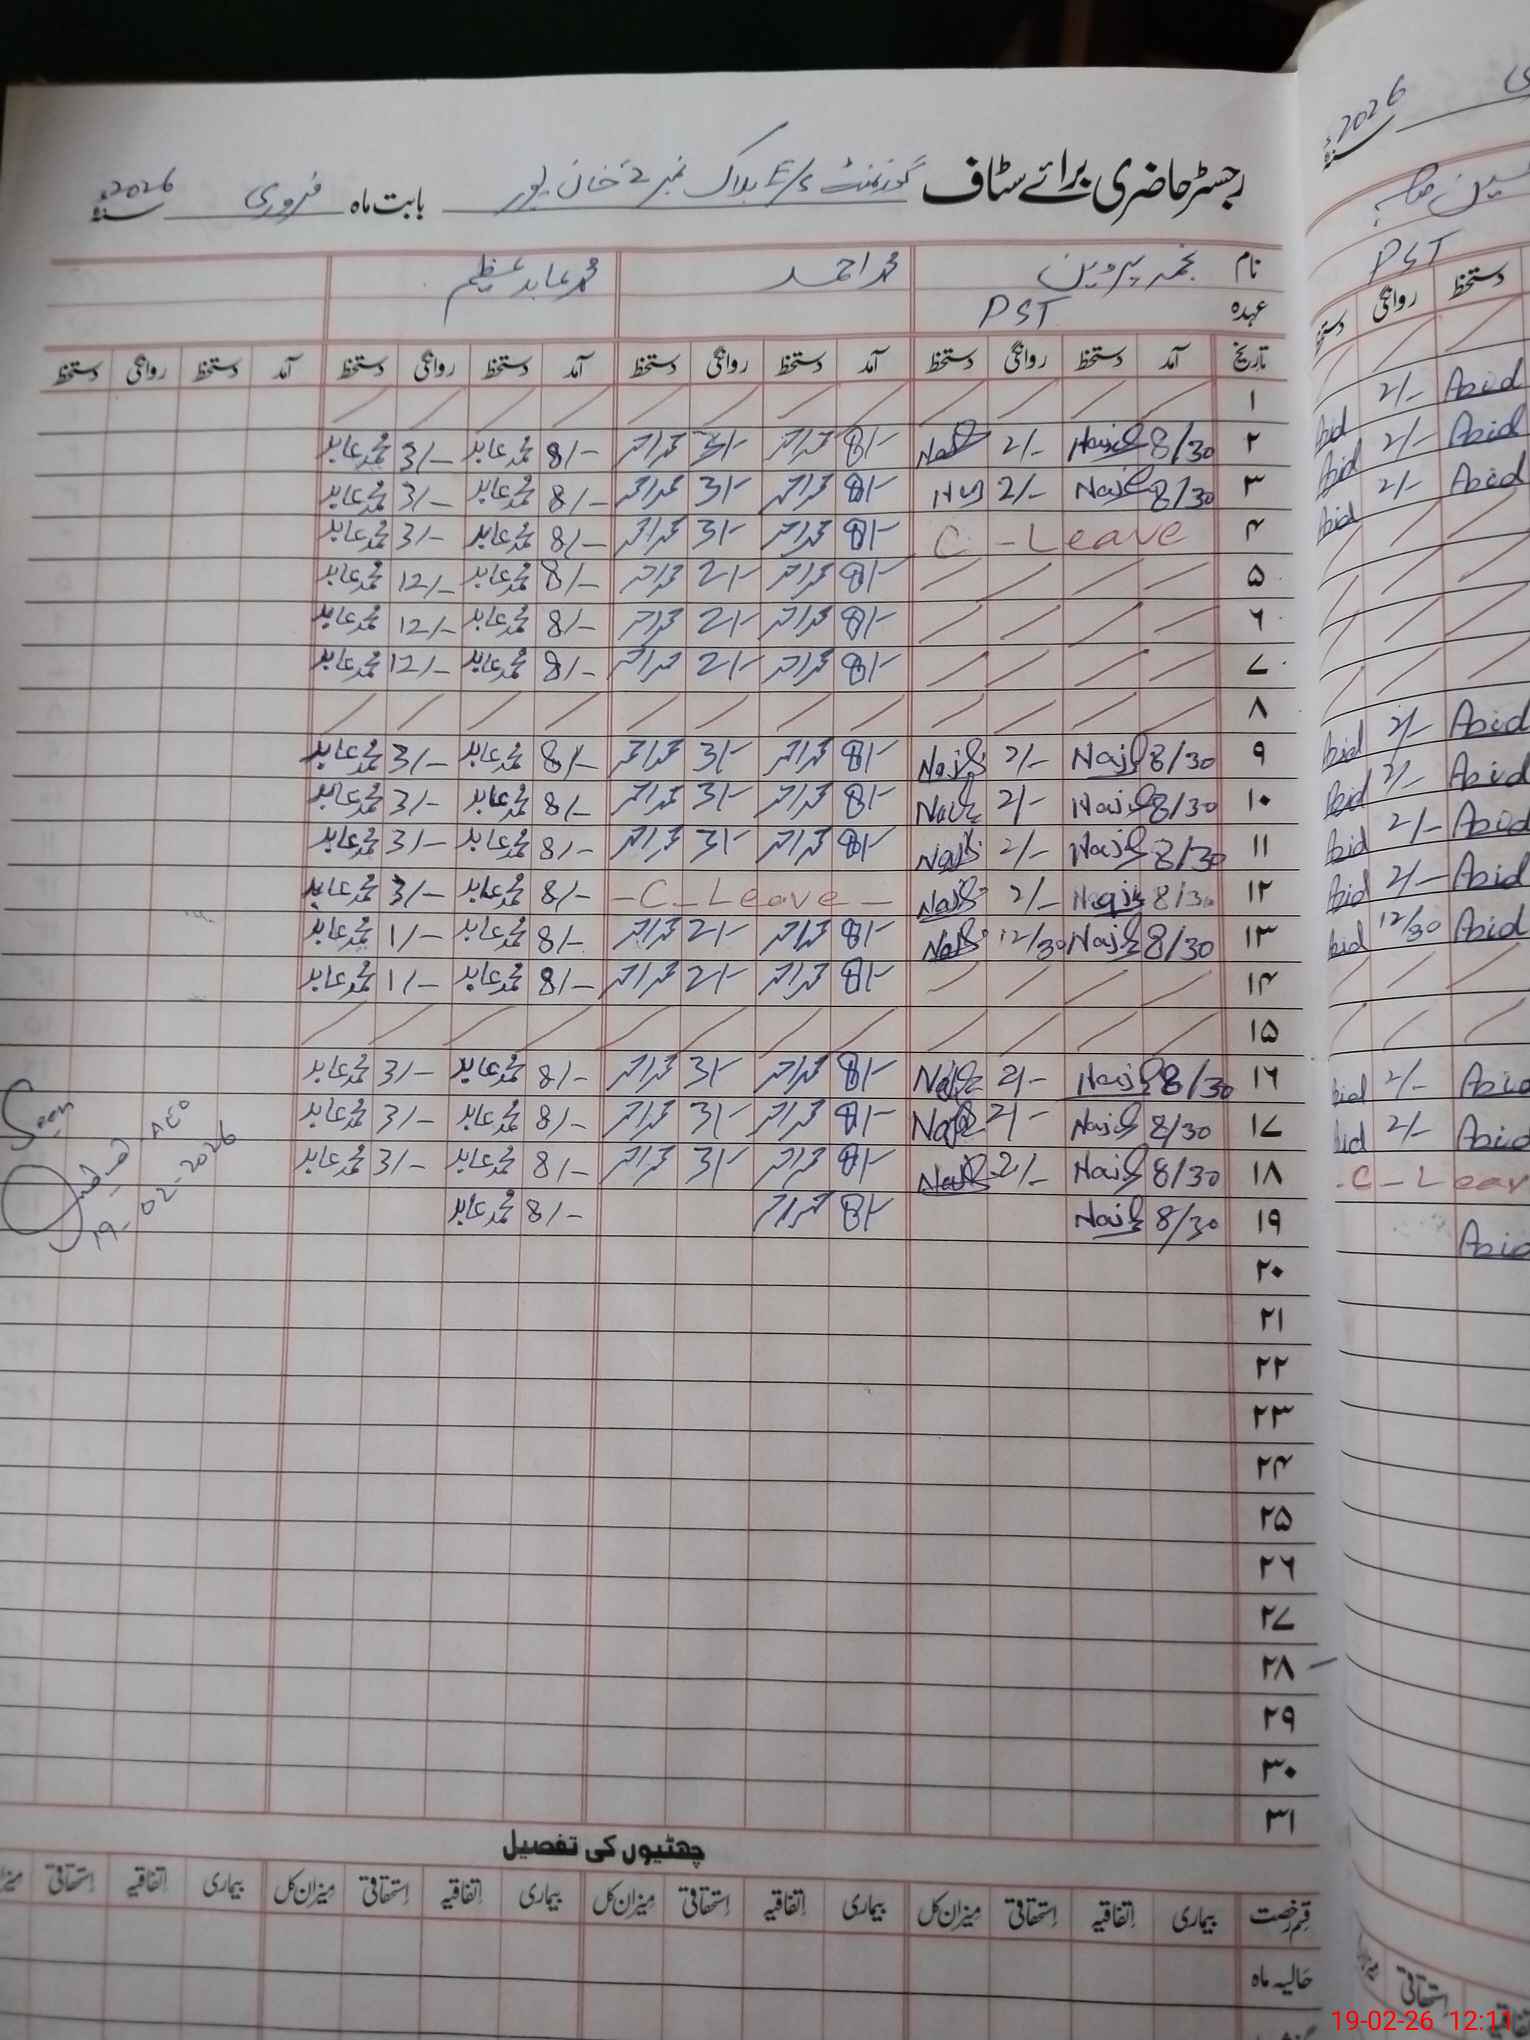 رجسٹر حاضری برائے سٹاف گورنمنٹ E/S بلاک نمبر 2 خان پور بابت ماہ فروری سنہ 2026ء
نام نجمہ پروین محمد احمد محمد عابد عظیم
عہدہ PST
تاریخ آمد دستخط روانگی دستخط آمد دستخط روانگی دستخط آمد دستخط روانگی دستخط آمد دستخط روانگی دستخط
۱
۲ 8/30 2/- 8/- محمد احمد 3/- محمد احمد 8/- محمد عابد 3/- محمد عابد
۳ 8/30 2/- 8/- محمد احمد 3/- محمد احمد 8/- محمد عابد 3/- محمد عابد
۴ C - Leave 8/- محمد احمد 3/- محمد احمد 8/- محمد عابد 3/- محمد عابد
۵ 8/- محمد احمد 2/- محمد احمد 8/- محمد عابد 12/- محمد عابد
۶ 8/- محمد احمد 2/- محمد احمد 8/- محمد عابد 12/- محمد عابد
۷ 8/- محمد احمد 2/- محمد احمد 8/- محمد عابد 12/- محمد عابد
۸
۹ 8/30 2/- 8/- محمد احمد 3/- محمد احمد 8/- محمد عابد 3/- محمد عابد
۱۰ 8/30 2/- 8/- محمد احمد 3/- محمد احمد 8/- محمد عابد 3/- محمد عابد
۱۱ 8/30 2/- 8/- محمد احمد 3/- محمد احمد 8/- محمد عابد 3/- محمد عابد
۱۲ 8/30 2/- - C - Leave - 8/- محمد عابد 3/- محمد عابد
۱۳ 8/30 12/30 8/- محمد احمد 2/- محمد احمد 8/- محمد عابد 1/- محمد عابد
۱۴ 8/- محمد احمد 2/- محمد احمد 8/- محمد عابد 1/- محمد عابد
۱۵
۱۶ 8/30 2/- 8/- محمد احمد 3/- محمد احمد 8/- محمد عابد 3/- محمد عابد
۱۷ 8/30 2/- 8/- محمد احمد 3/- محمد احمد 8/- محمد عابد 3/- محمد عابد
۱۸ 8/30 2/- 8/- محمد احمد 3/- محمد احمد 8/- محمد عابد 3/- محمد عابد
۱۹ 8/30 8/- محمد احمد 8/- محمد عابد
Seen
AEO
19-02-2026
۲۰
۲۱
۲۲
۲۳
۲۴
۲۵
۲۶
۲۷
۲۸
۲۹
۳۰
۳۱
چھٹیوں کی تفصیل
قسم رخصت بیماری اتفاقیہ استحقاقی میزان کل بیماری اتفاقیہ استحقاقی میزان کل بیماری اتفاقیہ استحقاقی میزان کل بیماری اتفاقیہ استحقاقی
حالیہ ماہ
سنہ 2026ء
PST
دستخط روانگی دستخط
Abid 2/- Abid
Abid 2/- Abid
Abid 2/- Abid
Abid 2/- Abid
Abid 2/- Abid
Abid 2/- Abid
Abid 2/- Abid
Abid 12/30 Abid
Abid 2/- Abid
Abid 2/- Abid
- C - Leav
Abid
استحقاقی
اتفاقیہ
19-02-26 12:11